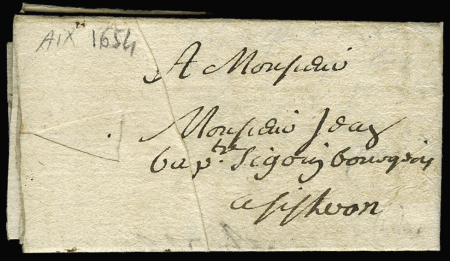 AIX 1654
A Monsieur
Monsieur Jean
bap.te Sigoin bourgeois
a sisteron